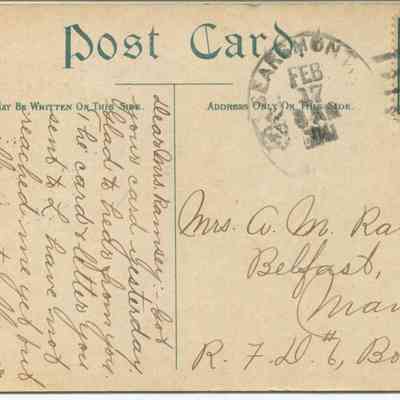 Post Card
MAY BE WRITTEN ON THIS SIDE.
ADDRESS ONLY ON THIS SIDE.
FEB
17
Dear Mrs. Ramsey:- Got
your card yesterday
glad to hear from you.
The card & letter you
sent to L. have not
reached me yet but
Mrs. A. M. Ra
Belfast,
R. F. D. #6, Bo